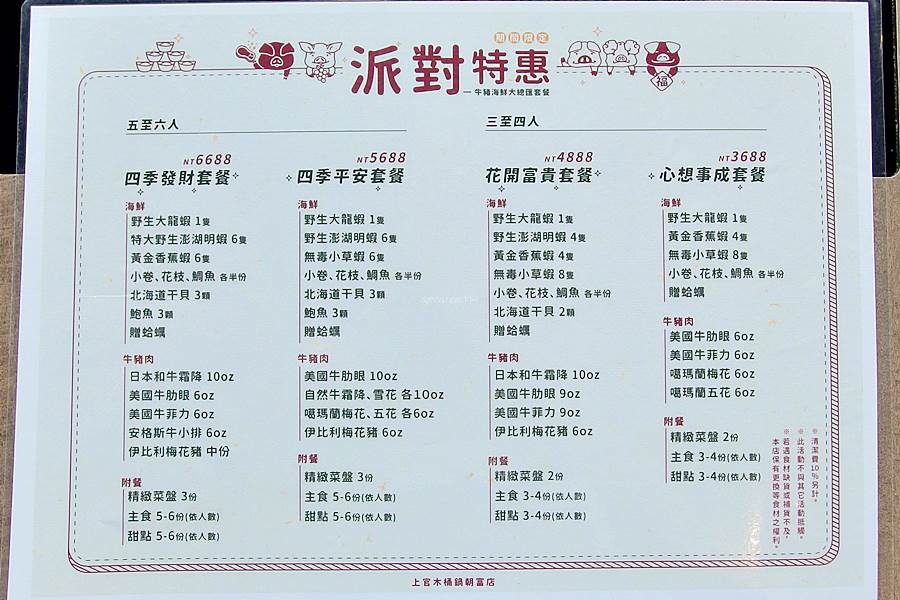 期間限定
派對特惠
牛豬海鮮大總匯套餐
福
五至六人
NT6688
四季發財套餐
海鮮
野生大龍蝦 1隻
特大野生澎湖明蝦 6隻
黃金香蕉蝦 6隻
小卷、花枝、鯛魚 各半份
北海道干貝 3顆
鮑魚 3顆
贈蛤蠣
牛豬肉
日本和牛霜降 10oz
美國牛肋眼 6oz
美國牛菲力 6oz
安格斯牛小排 6oz
伊比利梅花豬 中份
附餐
精緻菜盤 3份
主食 5-6份(依人數)
甜點 5-6份(依人數)
NT5688
四季平安套餐
海鮮
野生大龍蝦 1隻
野生澎湖明蝦 6隻
無毒小草蝦 6隻
小卷、花枝、鯛魚 各半份
北海道干貝 3顆
鮑魚 3顆
贈蛤蠣
牛豬肉
美國牛肋眼 10oz
自然牛霜降、雪花 各10oz
噶瑪蘭梅花、五花 各6oz
伊比利梅花豬 6oz
附餐
精緻菜盤 3份
主食 5-6份(依人數)
甜點 5-6份(依人數)
三至四人
NT4888
花開富貴套餐
海鮮
野生大龍蝦 1隻
野生澎湖明蝦 4隻
黃金香蕉蝦 4隻
無毒小草蝦 8隻
小卷、花枝、鯛魚 各半份
北海道干貝 2顆
贈蛤蠣
牛豬肉
日本和牛霜降 10oz
美國牛肋眼 9oz
美國牛菲力 9oz
伊比利梅花豬 6oz
附餐
精緻菜盤 2份
主食 3-4份(依人數)
甜點 3-4份(依人數)
NT3688
心想事成套餐
海鮮
野生大龍蝦 1隻
黃金香蕉蝦 4隻
無毒小草蝦 8隻
小卷、花枝、鯛魚 各半份
贈蛤蠣
牛豬肉
美國牛肋眼 6oz
美國牛菲力 6oz
噶瑪蘭梅花 6oz
噶瑪蘭五花 6oz
附餐
精緻菜盤 2份
主食 3-4份(依人數)
甜點 3-4份(依人數)
※清潔費10%另計。
※此活動不與其它活動抵觸。
※若遇食材缺貨或補貨不及，
本店保有更換等食材之權利。
上官木桶鍋朝富店